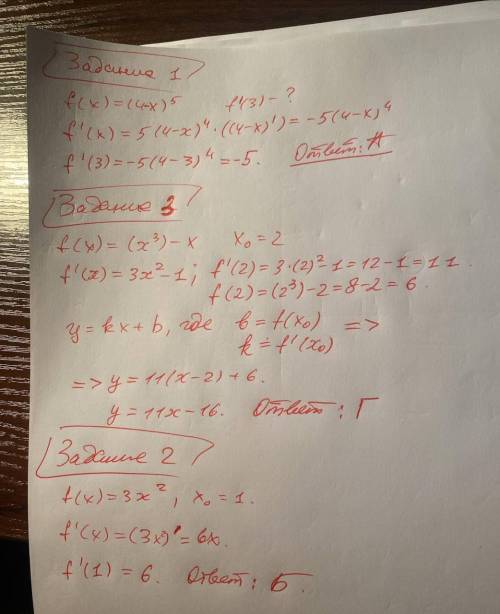 Задание 1
f(x) = (4-x)⁵ f'(3) - ?
f'(x) = 5(4-x)⁴ · ((4-x)') = -5(4-x)⁴
f'(3) = -5(4-3)⁴ = -5. Ответ: А
Задание 3
f(x) = (x³) - x x₀ = 2
f'(x) = 3x² - 1; f'(2) = 3·(2)² - 1 = 12 - 1 = 11.
f(2) = (2³) - 2 = 8 - 2 = 6.
y = kx + b, где b = f(x₀) =>
k = f'(x₀)
=> y = 11(x-2) + 6.
y = 11x - 16. Ответ: Г
Задание 2
f(x) = 3x², x₀ = 1.
f'(x) = (3x²)' = 6x.
f'(1) = 6. Ответ: Б.